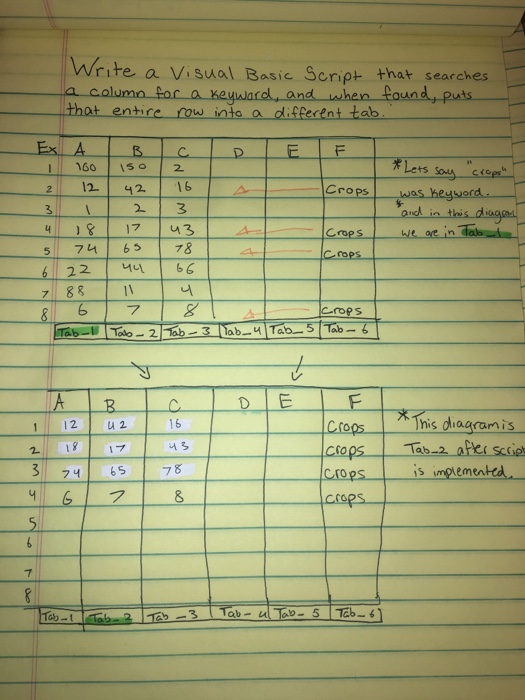 Write a Visual Basic Script that searches
a column for a keyword, and when found, puts
that entire row into a different tab.
Ex A B C D E F
1 160 150 2
2 12 42 16 Crops
3 1 2 3
4 18 17 43 Crops
5 74 65 78 Crops
6 22 44 66
7 88 11 4
8 6 7 8 Crops
Tab-1 Tab-2 Tab-3 Tab-4 Tab-5 Tab-6
* Lets say "crops"
was keyword.
* and in this diagram
we are in Tab-1
A B C D E F
1 12 42 16 Crops
2 18 17 43 Crops
3 74 65 78 Crops
4 6 7 8 Crops
5
6
7
8
Tab-1 Tab-2 Tab-3 Tab-4 Tab-5 Tab-6
* This diagram is
Tab-2 after scrip
is implemented.